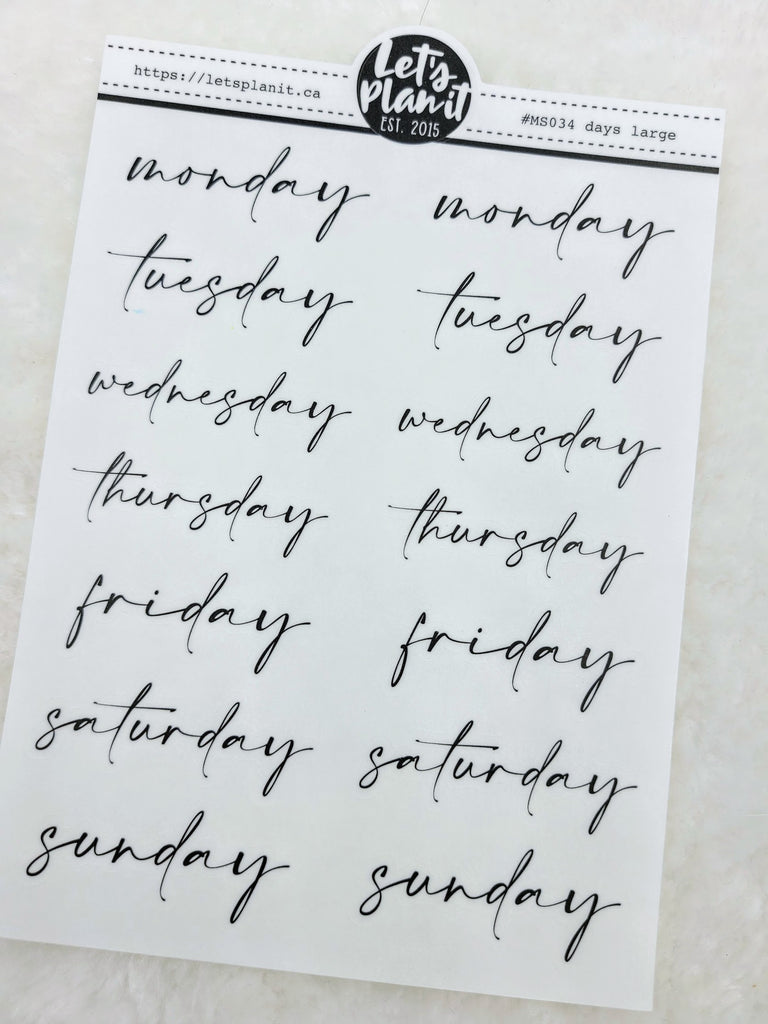 https://letsplanit.ca
Let's
plan it
EST. 2015
#MS034 days large
monday monday
tuesday tuesday
wednesday wednesday
thursday thursday
friday friday
saturday saturday
sunday sunday